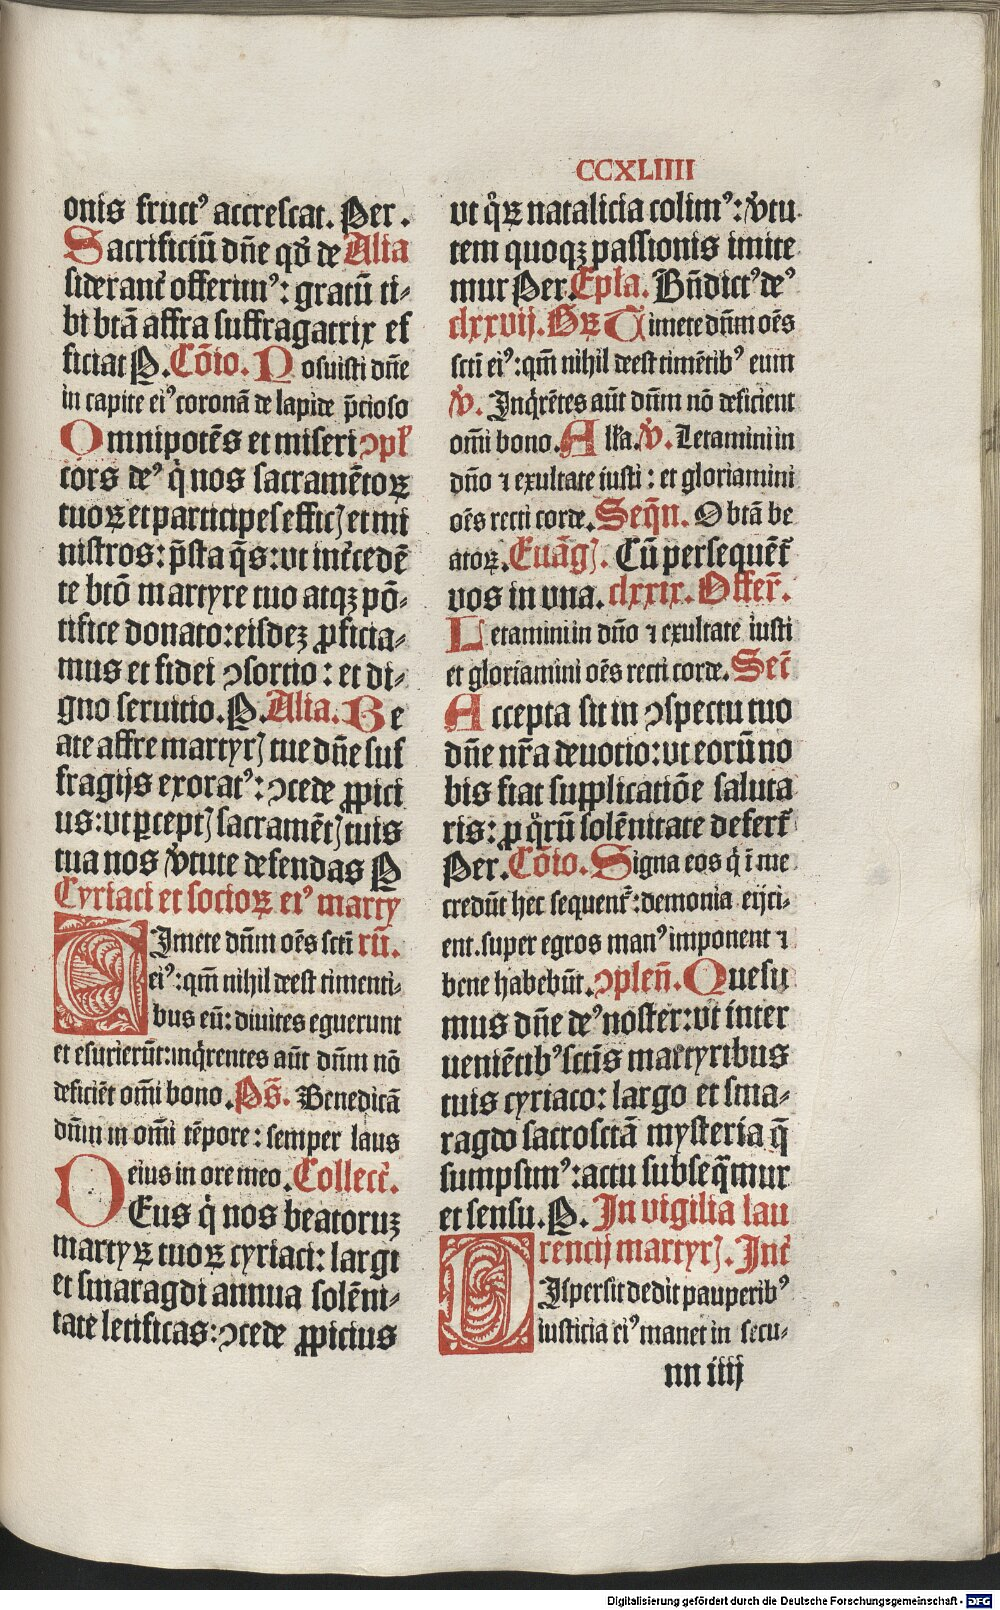 CCXLIIII
onis fruct⁹ accrescat. Per.
Sacrificiū dn̄e qđ de Alia
siderant̄ offerim⁹: gratū ti-
bi btā affra suffragatrix ef
ficiat P. Cōio. Posuisti dn̄e
in capite ei⁹ coronā de lapide p̄cioso
Omnipotēs et miseri ↄpl̄
cors de⁹ q̇ nos sacramētoꝝ
tuoꝝ et participes efficꝭ et mi
nistros: p̄sta q̄s: vt int̄cedē
te btō martyre tuo atqꝫ pō-
tifice donato: eisdeꝫ ꝓficia-
mus et fidei ↄsortio: et di-
gno seruicio. P. Alia. Be
ate affre martyrꝭ tue dn̄e suf
fragijs exorat⁹: ↄcede ꝓpici
us: vt ꝑceptꝭ sacramētꝭ tuis
tua nos v̓tute defendas P
Cyriaci et socioꝝ ei⁹ marty
Timete dn̄m oēs sctī rū.
ei⁹: qm̄ nihil deest timenti-
bus eū: diuites eguerunt
et esurierūt: inq̇rentes aūt dn̄m nō
deficiēt om̄i bono. Ps̄. Benedicā
dn̄m in om̄i tēpore: semper laus
eius in ore meo. Collect̄.
DEus q̇ nos beatoruꝫ
martyꝝ tuoꝝ cyriaci: largi
et smaragdi annua solēni-
tate letificas: ↄcede ꝓpicius
vt q̊ꝝ natalicia colim⁹: v̓tu
tem quoqꝫ passionis imite
mur Per. Epla. Bn̄dict⁹ de⁹
clxxvij. Gꝝ Timete dn̄m oēs
sctī ei⁹: qm̄ nihil deest timētib⁹ eum
V̓. Inq̇rētes aūt dn̄m nō deficient
om̄i bono. All̄a. V̓. Letamini in
dn̄o ⁊ exultate iusti: et gloriamini
oēs recti corde. Seq̄n. O btā be
atoꝝ. Euāgꝭ. Cū persequēt̄
vos in vna. clxxix. Offer̄.
Letamini in dn̄o ⁊ exultate iusti
et gloriamini oēs recti corde. Sec̄
Accepta sit in ↄspectu tuo
dn̄e nr̄a deuotio: vt eorū no
bis fiat supplicatiōe saluta
ris: ꝓ q̊rū solēnitate defert̄
Per. Cōio. Signa eos q̇ ī me
credūt hec sequent̄: demonia eijci-
ent. super egros man⁹ imponent ⁊
bene habebūt. ↄplen̄. Quesu
mus dn̄e de⁹ noster: vt inter
ueniētib⁹ sctīs martyribus
tuis cyriaco: largo et sma-
ragdo sacrosctā mysteria q̄
sumpsim⁹: actu subseq̄mur
et sensu. P. In vigilia lau
rencij martyrꝭ. Int̄
DIspersit dedit pauperib⁹
iusticia ei⁹ manet in secu-
nn iiij
Digitalisierung gefördert durch die Deutsche Forschungsgemeinschaft - DFG